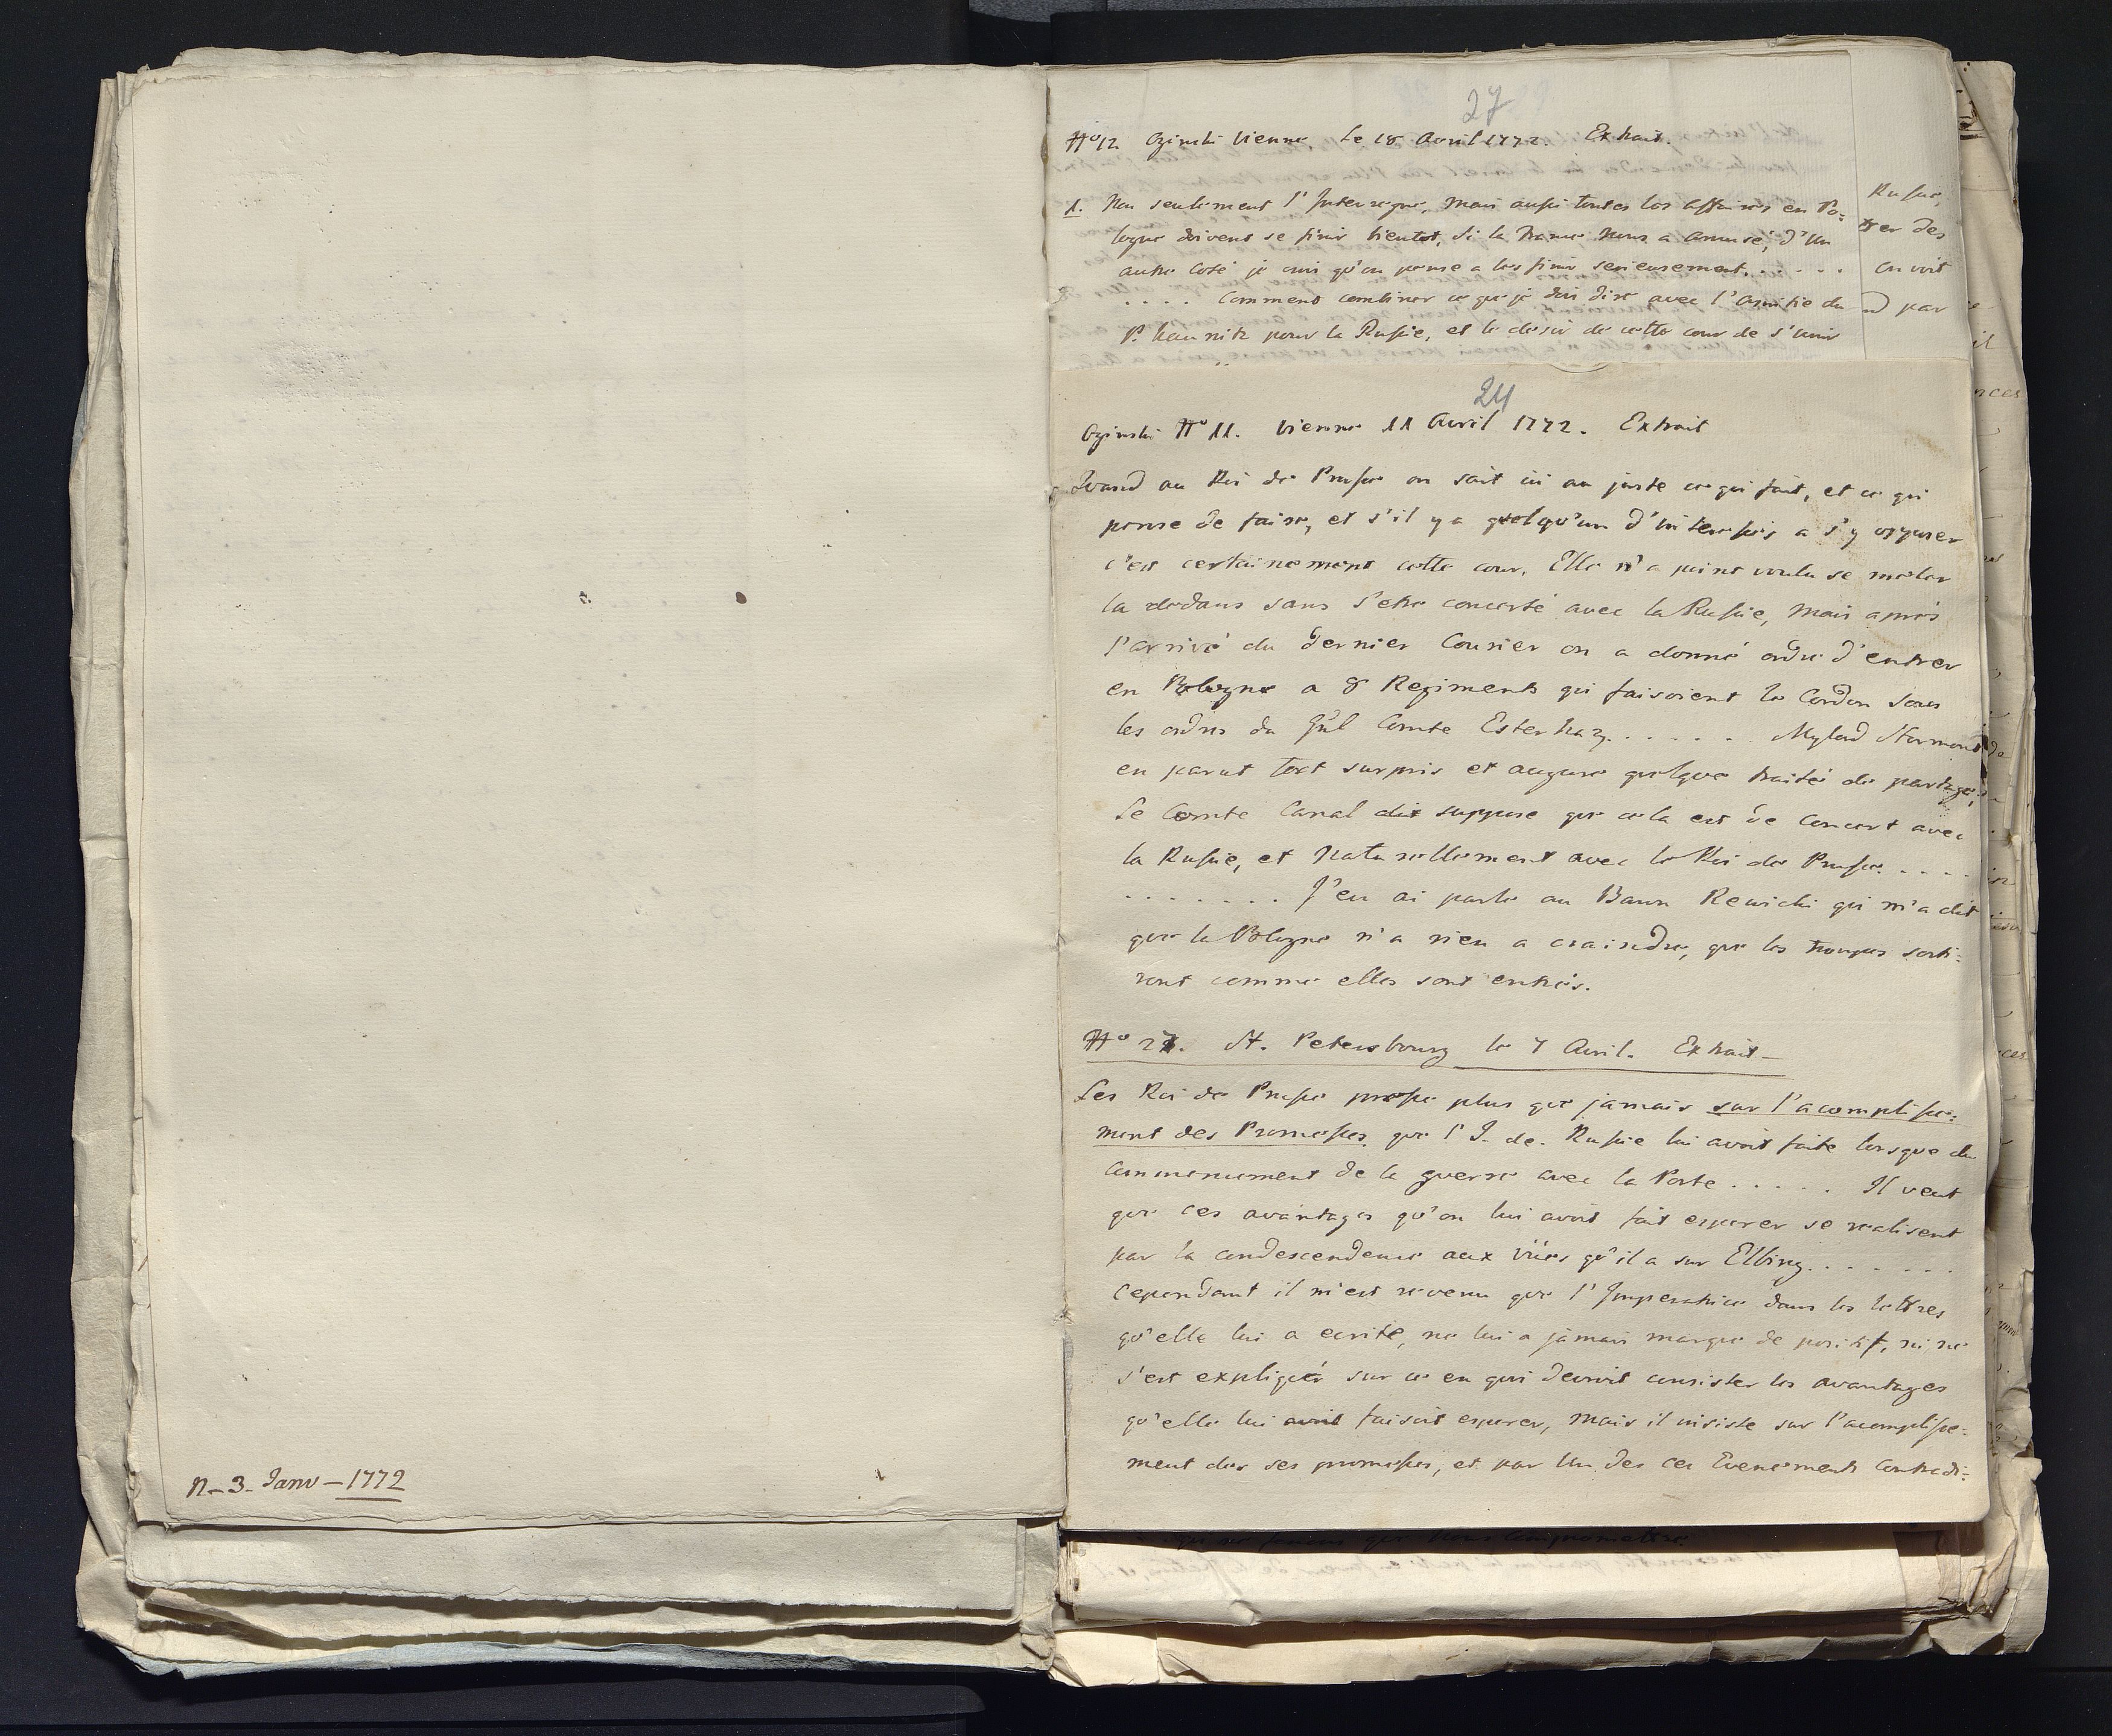 n_3_Janv_1772
27
No 12 Oginski Vienne. Le 18 Avril 1772. Extrait.
1. Non seulement l'Interregne, mais aussi toutes les affaires en Po=
logne doivent se finir bientot, Si la France nous a amusé, d'un
autre coté je crois qu'on pense a les finir serieusement. . . . . .
. . . . Comment combiner ce que je dois dire avec l'Amitié du
P. Kaunitz pour la Russie, et le desir de cette cour de s'unir
Russie,
rer des
on voit
par
24
Oginski No 11. Vienne 11 Avril 1772. Extrait
Quand au Roi de Prusse on sait ici au juste ce qui fait, et ce qui
pense de faire, et s'il y a quelqu'un d'interessés a s'y opposer
c'est certainement cette cour. Elle n'a point voulu se meler
la dedans sans s'etre concerté avec la Russie, mais aprés
l'arrivé du dernier Courier on a donné ordre d'entrer
en Pologne a 8 Regiments qui faisoient le Cordon sous
les ordres du Gńl Comte Esterhazy. . . . . . Mylord Stormont
en parut fort surpris et augure quelque traité de partage,
Le Comte Canal dit suppose que cela est de Concert avec
la Russie, et naturellement avec le Roi de Prusse. . . . .
. . . . . . . J'en ai parlé au Baron Rewicki qui m'a dit
que la Pologne n'a rien a craindre, que les troupes sorti=
ront comme elles sont entrés.
No 27. St. Petersbourg le 7 Avril. Extrait_
Les Roi de Prusse presse plus que jamais sur l'acomplisse=
ment des Promesses que l'I. de. Russie lui avoit faite lorsque du
commencement de la guerre avec la Porte . . . . . Il veut
que ces avantages qu'on lui avoit fait esperer se realisent
par la condescendence aux vües qu'il a sur Elbing. . . . . . .
Cependant il m'est revenu que l'Imperatrice dans les lettres
qu'elle lui a ecrite, ne lui a jamais marqué de positif, ni ne
s'est expliquée sur ce en quoi devoit consister les avantages
qu'elle lui avoit faisoit esperer, Mais il insiste sur l'acomplisse=
ment des ses promesses, et par un des ces Evenements Contredi=